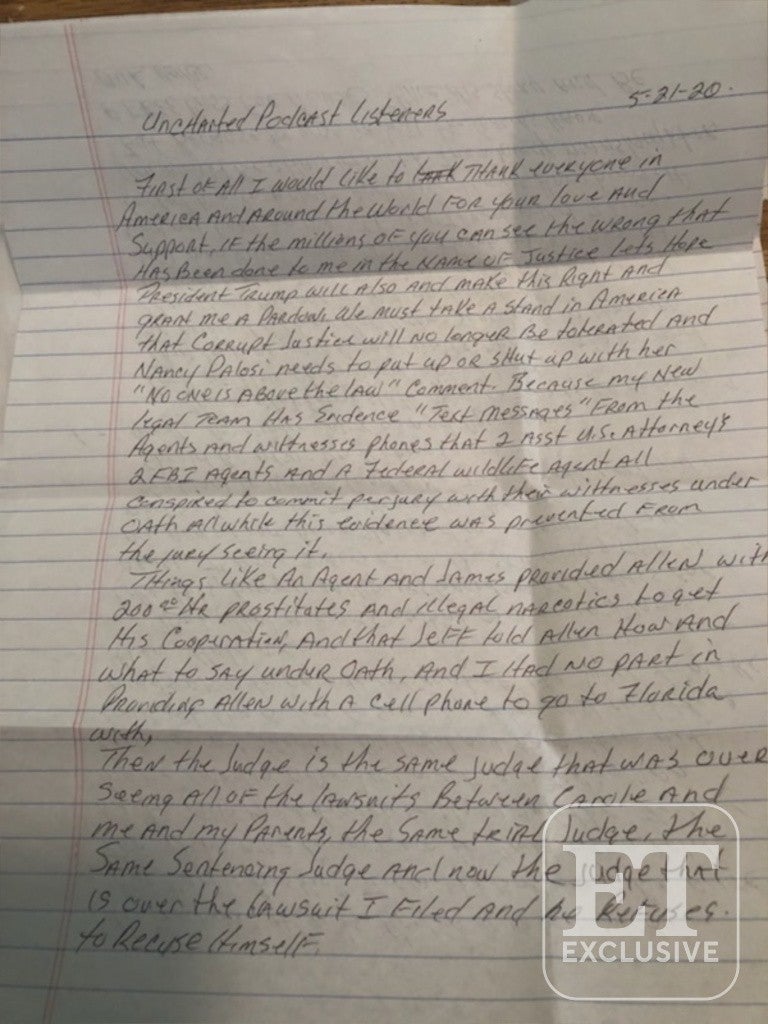 5-21-20.
Uncharted Podcast Listeners
First of all I would like to THANK everyone in
America and Around the World For your love And
Support, IF the millions of you can see the wrong that
Has Been done to me in the Name of Justice lets Hope
President Trump will also and make this Right And
grant me A Pardon. We must take A Stand in America
that Corrupt Justice will no longer Be tolerated And
Nancy Palosi needs to put up or shut up with her
"No one is Above the law" comment. Because my New
legal Team Has Evidence "Text messages" From the
Agents and wittnesses phones that 2 Asst U.S. Attorney's
2 FBI Agents And A Federal wildlife Agent All
conspired to commit perjury with their wittnesses under
OATH All while this evidence was prevented From
the jury seeing it.
Things like An Agent and James provided Allen with
200 00 Hr prostitates and illegal narcotics to get
His Cooperation, And that Jeff told Allen How And
what to say under OATH, And I Had no part in
Providing Allen with A cell phone to go to Florida
with,
Then the Judge is the same judge that was over
Seeing All of the lawsuits Between Carole And
me And my Parents, the Same trial Judge, the
Same Sentencing Judge And now the judge that
is over the lawsuit I Filed And he Refuses
to Recuse Himself.
ET
EXCLUSIVE